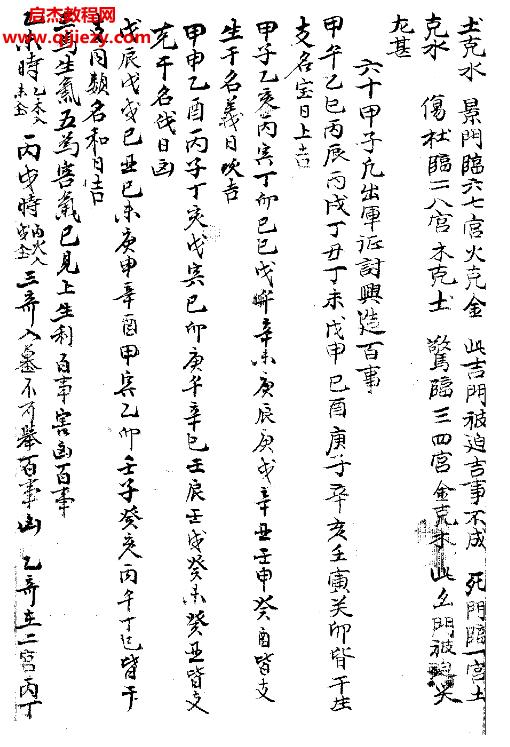 启杰教程网
www.qijiezy.com
土克水　景門臨六七宮火克金　此吉門被迫吉事不成　死門臨一宮土
克水　傷杜臨二八宮木克土　驚臨三四宮金克木此凶門被迫災
尤甚
六十甲子凡出軍征討興造百事
甲午乙巳丙辰丙戌丁丑丁未戊申己酉庚子辛亥壬寅癸卯皆干生
支名宝日上吉
甲子乙亥丙寅丁卯己巳戊辛未庚辰庚戌辛丑壬申癸酉皆支
生干名義日次吉
甲申乙酉丙子丁亥戊寅己卯庚午辛巳壬辰壬戌癸未癸丑皆支
克干名伐日凶
戊辰戊戌己丑己未庚申辛酉甲寅乙卯壬子癸亥丙午丁巳皆干
支同類名和日吉
三為生氣五為害氣已見上生利百事害凶百事
乙未時　丙戌時　三奇入墓不可舉百事凶　乙奇在二宮丙丁